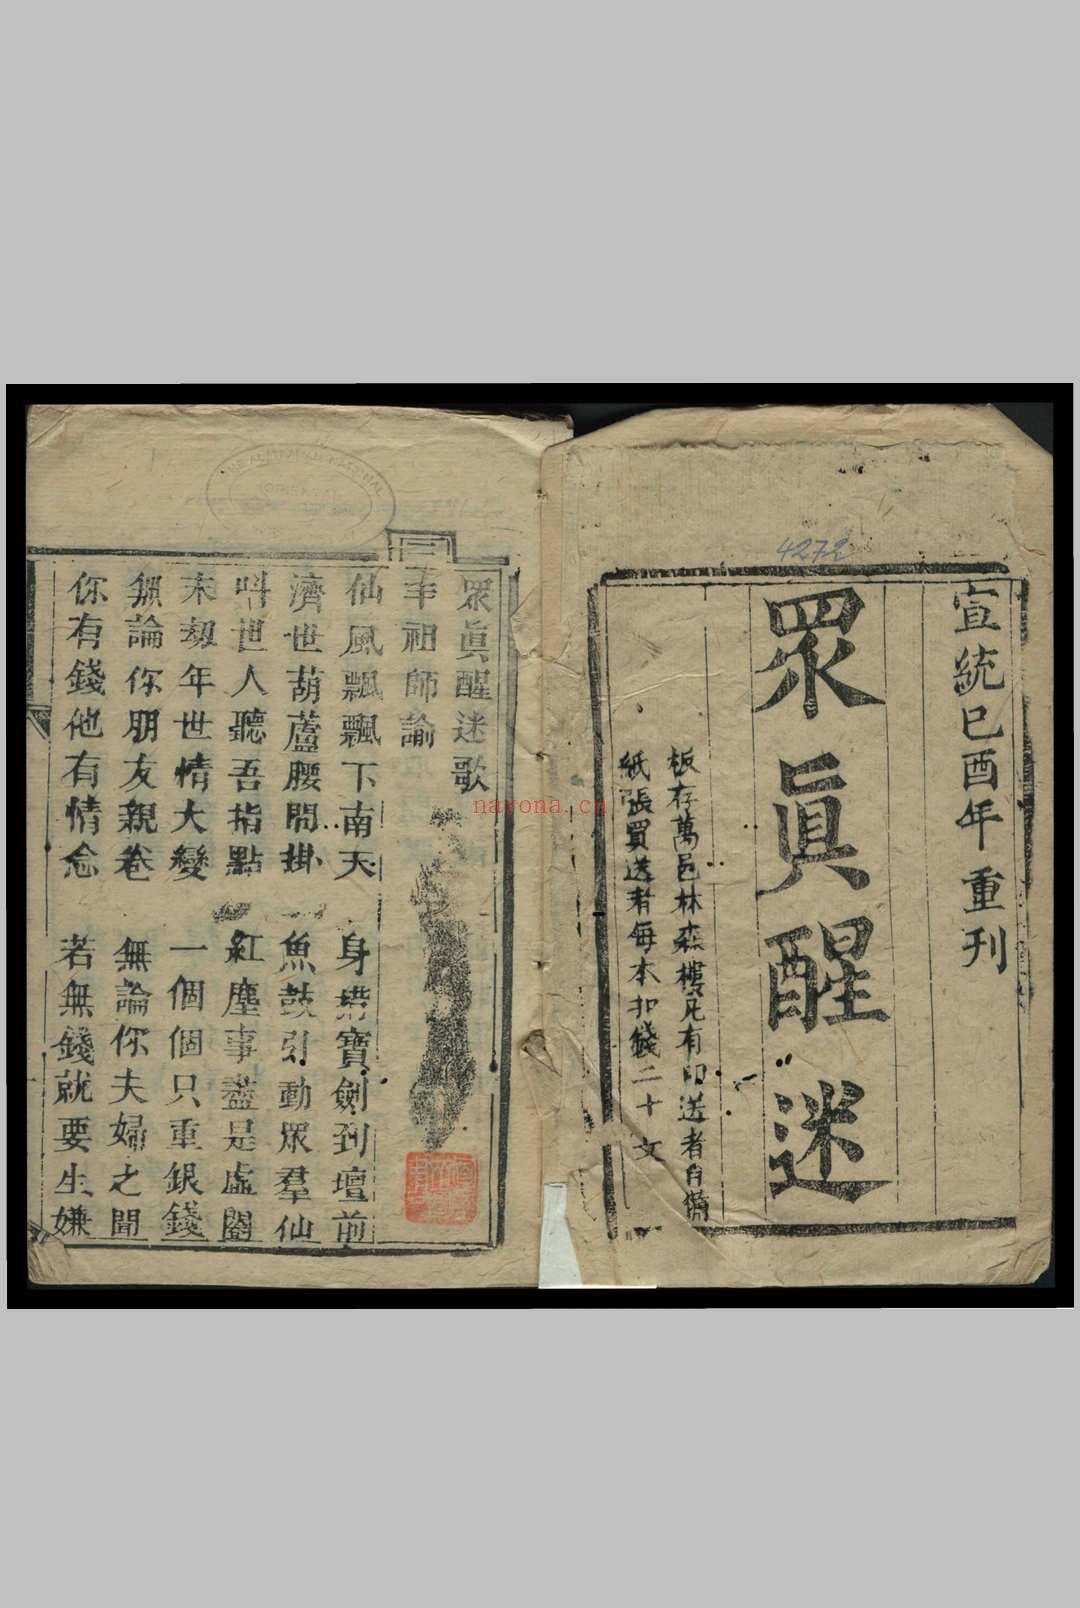 宣統己酉年重刊
眾眞醒迷
板存萬邑林森樓凡有印送者自備
紙張買送者每本扣錢二十文
4272
眾眞醒迷歌
祖師諭
仙風飄飄下南天 身揹寶劍到壇前
濟世葫蘆腰間掛 魚鼓引動眾羣仙
世人聽吾指點 紅塵事盡是虛閣
末刼年世情大變 一個個只重銀錢
無論你朋友親卷 無論你夫婦之間
你有錢他有情念 若無錢就要生嫌
nayona.cn